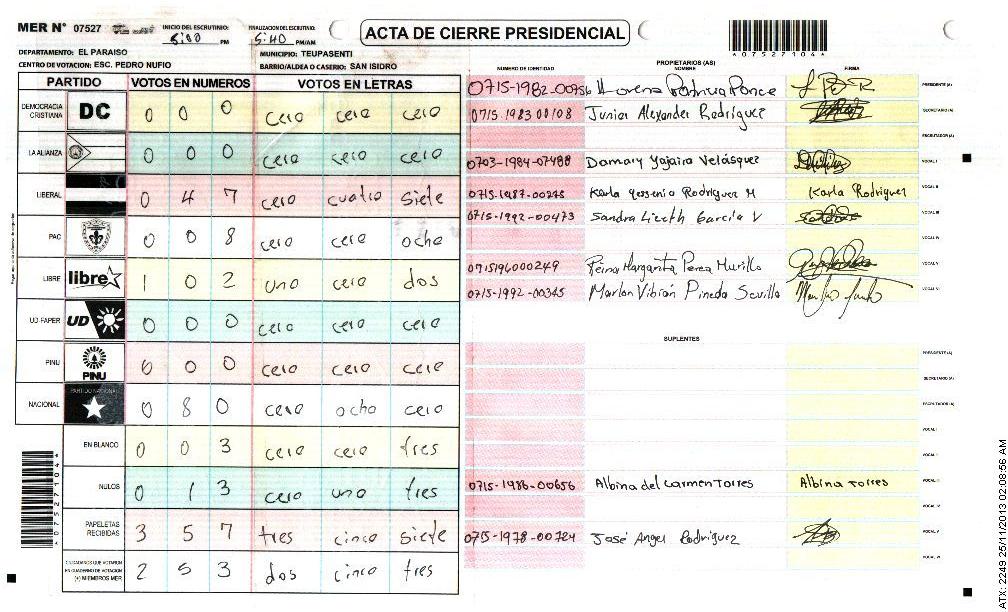 MER N° 07527
INICIO DEL ESCRUTINIO: 5:00 PM
FINALIZACION DEL ESCRUTINIO: 5:40 PM/AM
ACTA DE CIERRE PRESIDENCIAL
*07527104*
DEPARTAMENTO: EL PARAISO
MUNICIPIO: TEUPASENTI
CENTRO DE VOTACION: ESC. PEDRO NUFIO
BARRIO/ALDEA O CASERIO: SAN ISIDRO
PARTIDO VOTOS EN NUMEROS VOTOS EN LETRAS
DEMOCRACIA CRISTIANA DC 0 0 0 cero cero cero
LA ALIANZA 0 0 0 cero cero cero
LIBERAL 0 4 7 cero cuatro siete
PAC 0 0 8 cero cero ocho
LIBRE libre 1 0 2 uno cero dos
UD-FAPER UD 0 0 0 cero cero cero
PINU PINU 0 0 0 cero cero cero
NACIONAL PARTIDO NACIONAL 0 8 0 cero ocho cero
EN BLANCO 0 0 3 cero cero tres
NULOS 0 1 3 cero uno tres
PAPELETAS RECIBIDAS 3 5 7 tres cinco siete
CIUDADANOS QUE VOTARON EN CUADERNO DE VOTACION (+) MIEMBROS MER 2 5 3 dos cinco tres
*07527104*
PROPIETARIOS (AS)
NUMERO DE IDENTIDAD NOMBRE FIRMA
0715-1982-00756 Lorena Patricia Ponce PRESIDENTE (A)
0715-1983 00108 Junior Alexander Rodríguez SECRETARIO (A)
ESCRUTADOR (A)
0703-1984-07488 Damary Yajaira Velásquez VOCAL I
0715-1987-00275 Karla Yessenia Rodriguez M Karla Rodriguez VOCAL II
0715-1992-00473 Sandra Lizeth García V VOCAL III
VOCAL IV
0715196000249 Reina Margarita Perea Murillo VOCAL V
0715-1992-00345 Marlon Vibián Pineda Sevilla VOCAL VI
SUPLENTES
PRESIDENTE (A)
SECRETARIO (A)
ESCRUTADOR (A)
VOCAL I
VOCAL II
0715-1986-00656 Albina del Carmen Torres Albina Torres VOCAL III
VOCAL IV
0715-1978-00724 José Angel Rodríguez VOCAL V
VOCAL VI
ATX: 2249 25/11/2013 02:08:56 AM